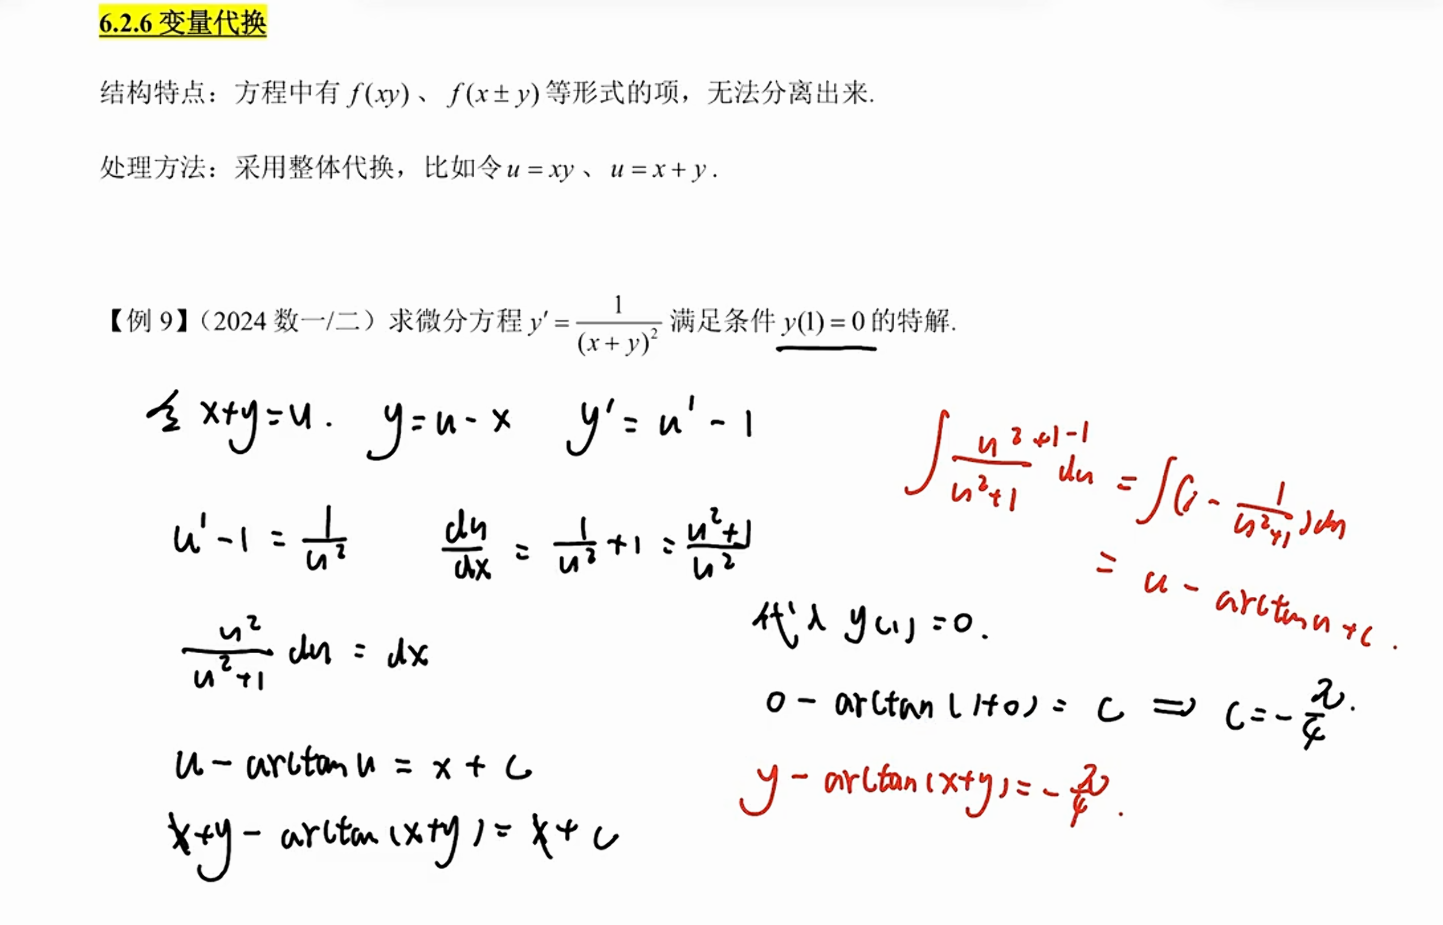 6.2.6 变量代换
结构特点：方程中有 f(xy)、f(x±y) 等形式的项，无法分离出来.
处理方法：采用整体代换，比如令 u = xy、u = x + y.
【例 9】（2024 数一/二）求微分方程 y′ = 1/(x + y)² 满足条件 y(1) = 0 的特解.
令 x+y=u. y=u-x y′=u′-1
u′-1 = 1/u² du/dx = 1/u² +1 = (u²+1)/u²
u²/(u²+1) du = dx
u - arctan u = x + C
x+y - arctan(x+y) = x + C
∫ (u²+1-1)/(u²+1) du = ∫(1 - 1/(u²+1))du
= u - arctan u + C.
代入 y(1)=0.
0 - arctan(1+0) = C ⇒ C = -π/4.
y - arctan(x+y) = -π/4.